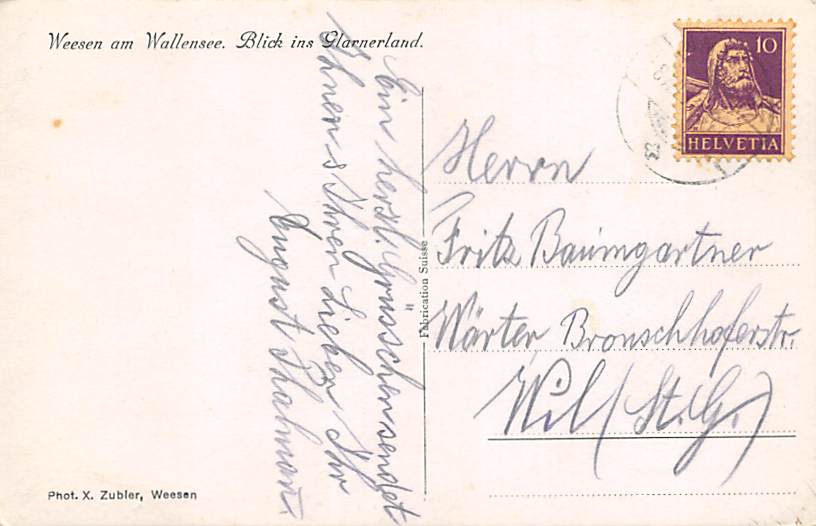 Weesen am Wallensee. Blick ins Glarnerland.
10
HELVETIA
Ein herzl. Grüsschen sendet
Ihnen & Ihren Lieben Ihr
August Thalmann
Herrn
Fritz Baumgartner
Wärter Bronschhoferstr.
Wil (St. G.)
Fabrication Suisse
Phot. X. Zubler, Weesen